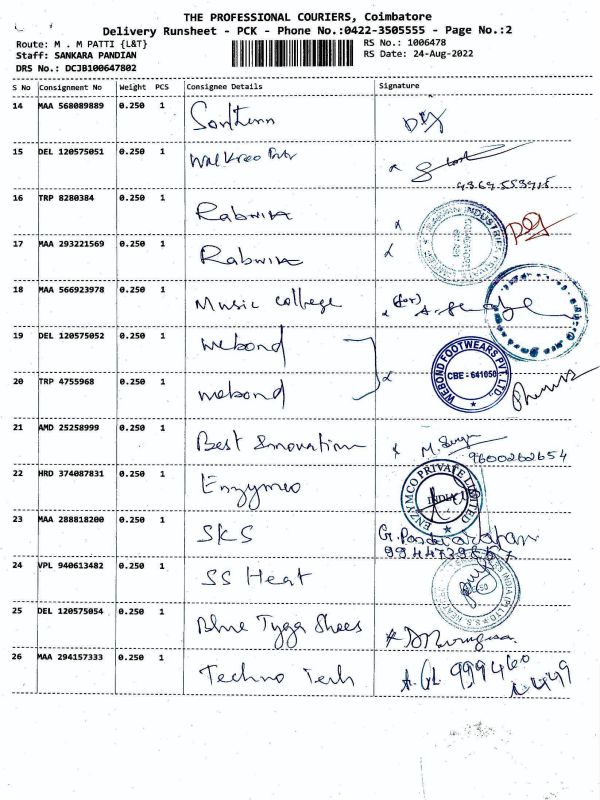 THE PROFESSIONAL COURIERS, Coimbatore
Delivery Runsheet - PCK - Phone No.:0422-3505555 - Page No.:2
Route: M . M PATTI {L&T} RS No.: 1006478
Staff: SANKARA PANDIAN RS Date: 24-Aug-2022
DRS No.: DCJB100647802
S No Consignment No Weight PCS Consignee Details Signature
14 MAA 568089889 0.250 1 Southern
15 DEL 120575051 0.250 1
9369553915
16 TRP 8280384 0.250 1 Rabwin
17 MAA 293221569 0.250 1 Rabwin
18 MAA 566923978 0.250 1 Music college (for)
19 DEL 120575052 0.250 1 webond
WEBOND FOOTWEARS PVT. LTD.,
CBE - 641050
20 TRP 4755968 0.250 1 webond
21 AMD 25258999 0.250 1 Best Innovation
9600262654
22 HRD 374087831 0.250 1 Enzymco
ENZYMCO PRIVATE LIMITED
INDIA
23 MAA 288818200 0.250 1 SKS
24 VPL 940613482 0.250 1 SS Heat
25 DEL 120575054 0.250 1 Blue Tyga Shoes
26 MAA 294157333 0.250 1 Techno Tech